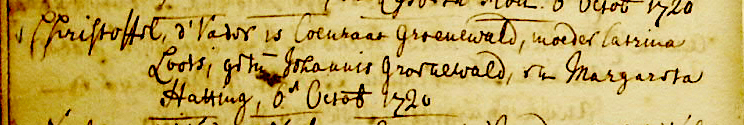 Octob 1720
Christoffel, d'Vader is Coenraat Groenewald, moeder Catrina
Loots, getu Johannis Groenewald, en Margareta
Hatting, Octob 1720